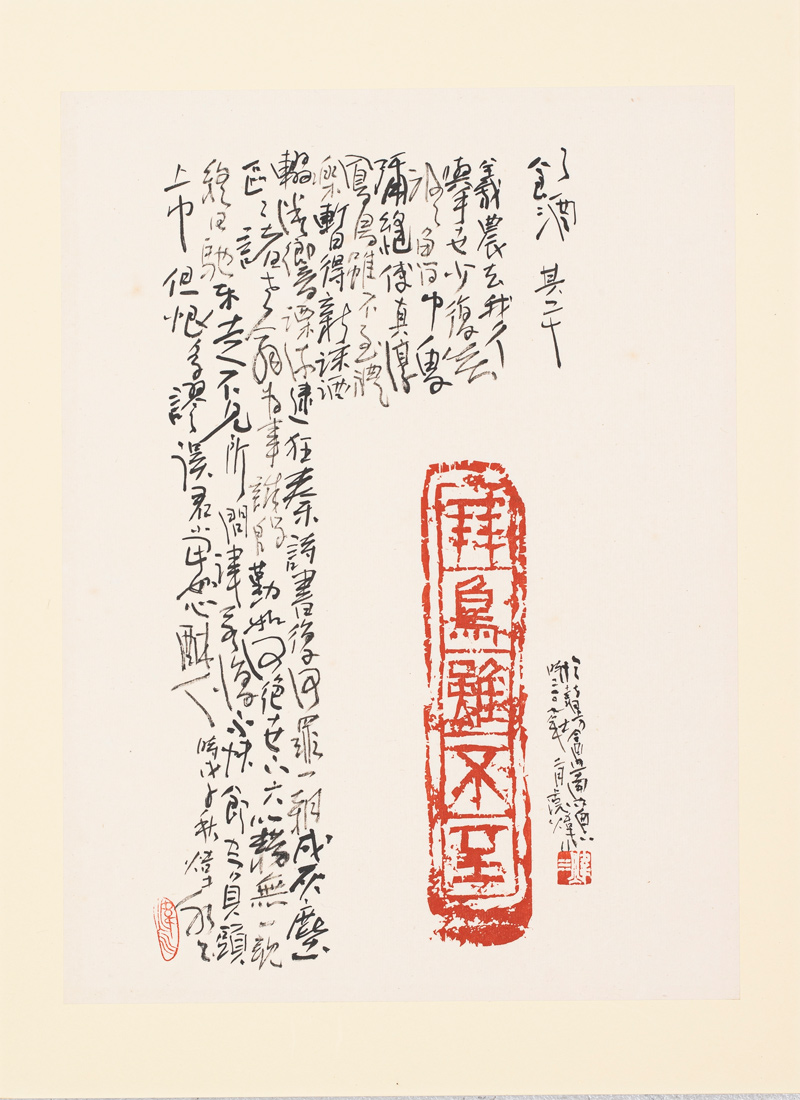 飲酒 其二十
羲農去我久
舉世少復真
汲汲魯中叟
彌縫使其淳
鳳鳥雖不至禮
樂暫得新洙泗
輟微響漂流逮狂秦詩書復何罪一朝成灰塵
區區諸老翁為事誠殷勤如何絕世下六籍無一親
終日馳車走不見所問津若復不快飲空負頭
上巾但恨多謬誤君當恕醉人 時戊子秋
鳳鳥雖不至
時二〇〇九年二月